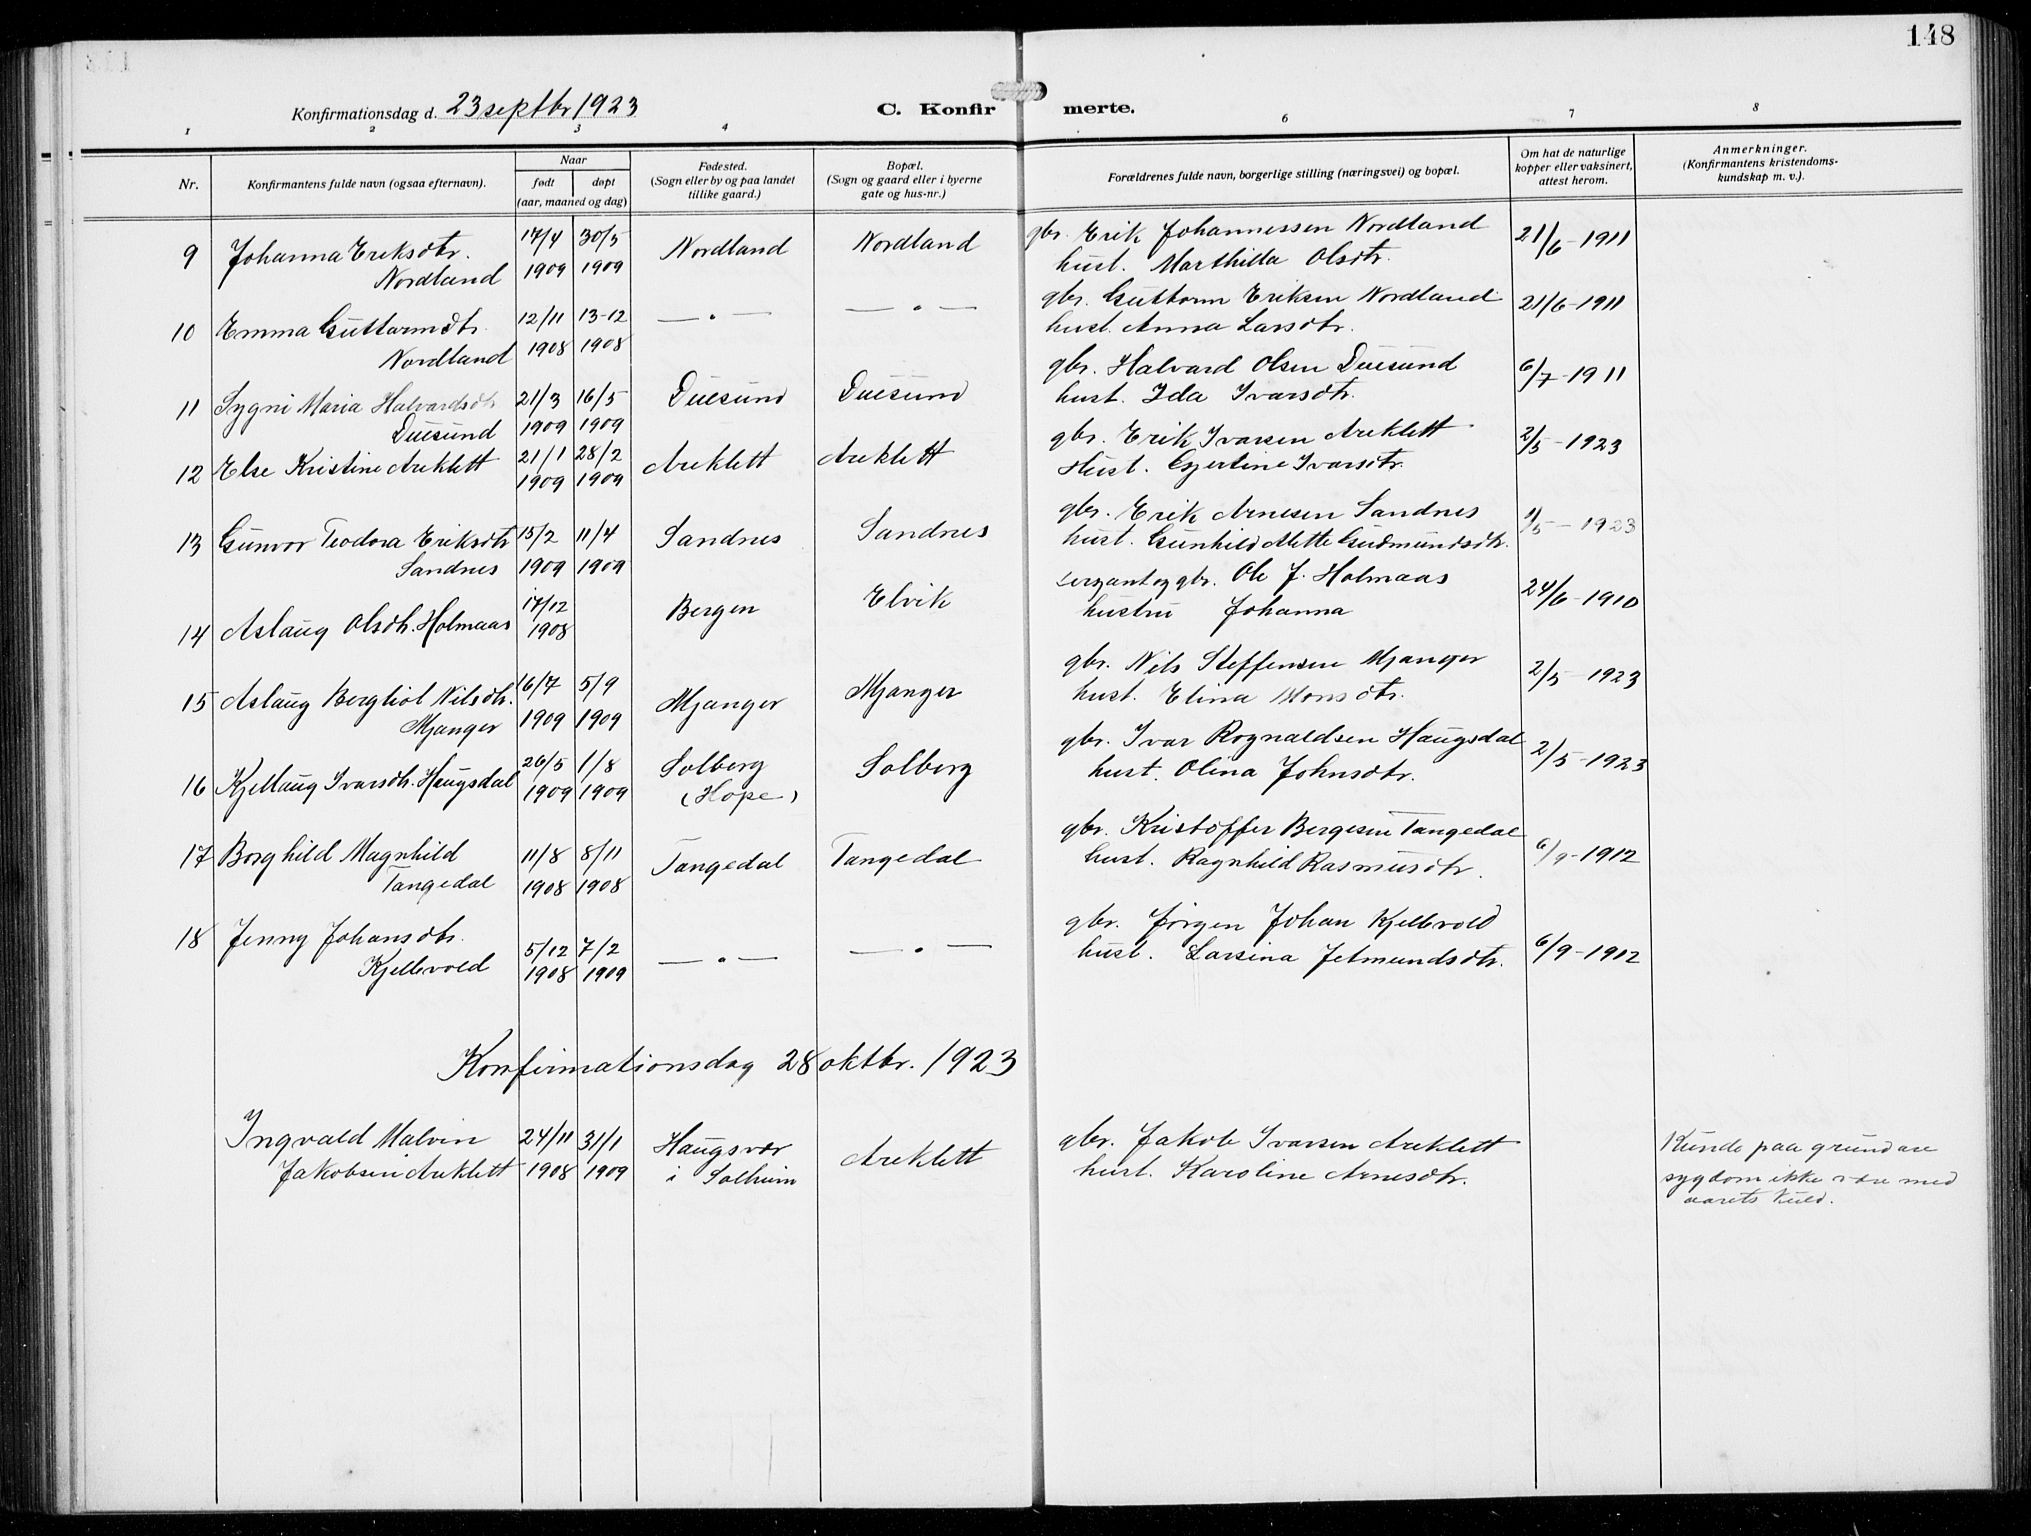 148
Konfirmationsdag d. 23 septbr 1923
C. Konfirmerte.
1 2 3 4 6 7 8
Nr.
Konfirmantens fulde navn (ogsaa efternavn).
Naar
født døpt
(aar, maaned og dag)
Fødested.
(Sogn eller by og paa landet
tillike gaard.)
Bopæl.
(Sogn og gaard eller i byerne
gate og hus-nr.)
Forældrenes fulde navn, borgerlige stilling (næringsvei) og bopæl.
Om hat de naturlige
kopper eller vaksinert,
attest herom.
Anmerkninger.
(Konfirmantens kristendoms-
kundskap m. v.).
9 Johanna Eriksdtr. 17/4 30/5 Nordland Nordland gbr. Erik Johannessen Nordland 21/6-1911
Nordland 1909 1909 hust. Marthilda Olsdtr.
10 Emma Guttormdtr. 12/11 13-12 — " — — " — gbr. Guttorm Eriksen Nordland 21/6-1911
Nordland 1908 1908 hust. Anna Larsdtr.
11 Sygni Maria Halvardsdtr 21/3 16/5 Duesund Duesund gbr. Halvard Olsen Duesund 6/7-1911
Duesund 1909 1909 hust. Ida Ivarsdtr.
12 Else Kristine Areklett 21/1 28/2 Areklett Areklett gbr. Erik Ivarsen Areklett 2/5-1923
1909 1909 Hust. Gjertine Ivarsdtr.
13 Gunvor Teodora Eriksdtr 15/2 11/4 Sandnes Sandnes gbr. Erik Arnesen Sandnes 1/5-1923
Sandnes 1909 1909 hust. Gunhild Mette Gudmundsdtr.
14 Aslaug Olsdtr. Holmaas 17/12 Bergen Elvik sersjant og gbr. Ole J. Holmaas 24/6-1910
1908 hustru Johanna
15 Aslaug Bergliot Nilsdtr. 16/7 5/9 Mjanger Mjanger gbr. Nils Steffensen Mjanger 2/5-1923
Mjanger 1909 1909 hust. Elina Monsdtr.
16 Kjellaug Ivarsdtr. Haugsdal 26/5 1/8 Solberg Solberg gbr. Ivar Rognaldsen Haugsdal 2/5-1923
1909 1909 (Hope) hust. Olina Johnsdtr.
17 Borghild Magnhild 11/8 8/11 Tangedal Tangedal gbr. Kristoffer Bergesen Tangedal 6/9-1912
Tangedal 1908 1908 hust. Ragnhild Rasmusdtr.
18 Jenny Johansdtr. 5/12 7/2 — " — — " — gbr. Jørgen Johan Kjellevold 6/9-1912
Kjellevold 1908 1909 hust. Larsina Jetmundsdtr.
Konfirmationsdag 28 oktbr. 1923
Ingvald Malvin 24/11 31/1 Haugsvær Areklett gbr. Jakob Ivarsen Areklett Kunde paa grund av
Jakobsen Areklett 1908 1909 i Solheim hust. Karoline Arnesdtr. sygdom ikke være med
aarets kuld.